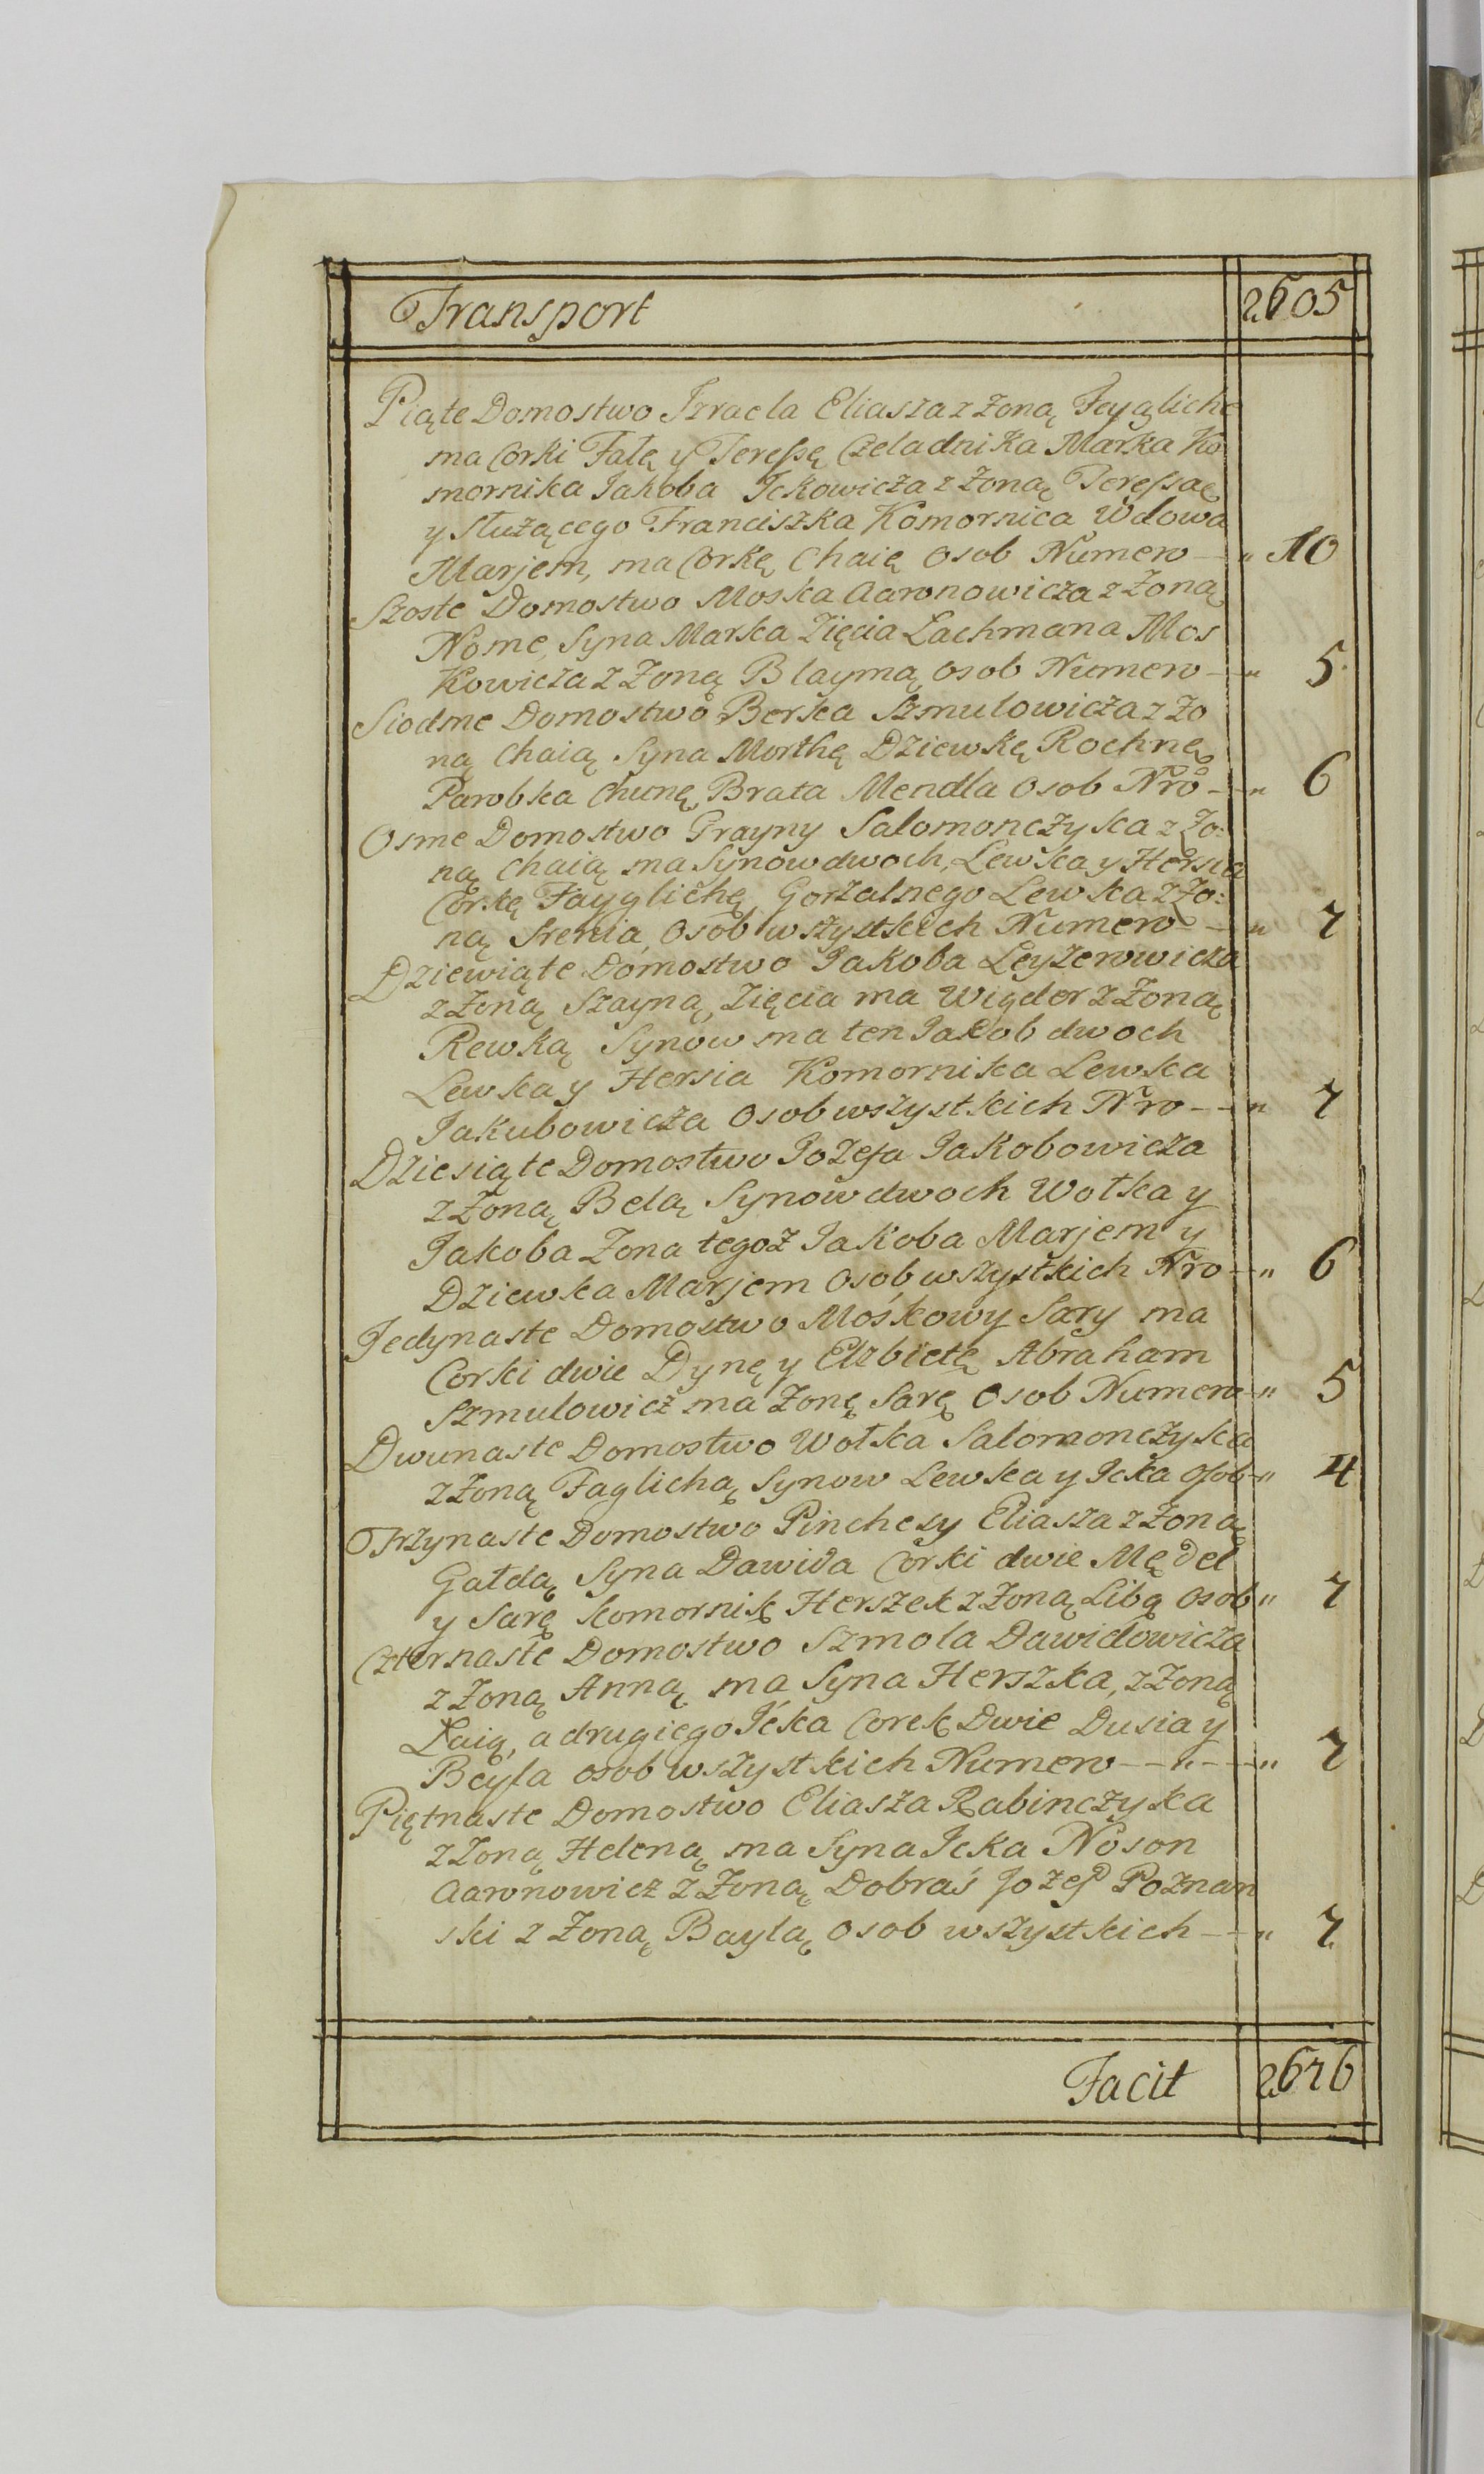 Transport 2605
Piąte Domostwo Izraela Eliasza z Żoną Feygliche
ma Corki Fałę y Teressę Czeladnika Marka Ko
mornika Jakoba Ickowicza z Żoną Teressaę
y Służącego Franciszka Komornica Wdowa
Marjem, ma Corkę Chaię osob Numero – „ 10
Szoste Domostwo Moska Aaronowicza z Żoną
Nome, Syna Marka Zięcia Lachmana Mos
kowicza z Żoną Blaymą osob Numero – „ 5
Siodme Domostwo Berka Szmulowicza z Żo
ną Chaią Syna Morthę Dziewkę Rochnę
Parobka Chunę, Brata Mendla Osob Nro – „ 6
Osme Domostwo Grayny Salomonczyka z Żo:
ną Chaią ma Synow dwoch, Lewka y Hersia
Corkę Fayglichę Gorzalnego Lewka z Żo:
ną Srenia, Osob wszystkich Numero – „ 7
Dziewiąte Domostwo Jakoba Leyzerowicza
z Żoną Szayną, Zięcia ma Wigdor z Żoną
Rewką Synow ma ten Jakob dwoch
Lewka y Hersia Komornika Lewka
Jakubowicza Osob wszystkich Nro – – „ 7
Dziesiąte Domostwo Jozefa Jakobowicza
z Żoną Belą Synow dwoch Wolka y
Jakoba Żona tegoż Jakoba Marjem y
Dziewka Marjem Osob wszystkich Nro – „ 6
Jedynaste Domostwo Mośkowy Sary ma
Corki dwie Dynę y Elżbietę Abraham
Szmulowicz ma Żonę Sarę Osob Numero – „ 5
Dwunaste Domostwo Wolka Salomonczyka
z Żoną Faglichą Synow Lewka y Icka Osob – „ 4
Trzynaste Domostwo Pinchesy Eliasza z Żoną
Gałdą Syna Dawida Corki dwie Mędel
y Sarę komornik Herszek z Żoną Libą Osob „ 7
Czternaste Domostwo Szmola Dawidowicza
z Żoną Anną ma Syna Herszka, z Żoną
Łaią, a drugiego Icka Corek Dwie Dusia y
Beyla osob wszystkich Numero – – „ – – „ 7
Piętnaste Domostwo Eliasza Rabinczyka
z Żoną Heleną ma Syna Icka Noson
Aaronowicz z Żoną Dobraś Jozef Poznan
ski z Żoną Baylą osob wszystkich – – „ 7
Facit 2676